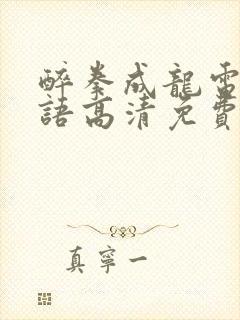 醉拳成龍電
語高清免費
真寧一